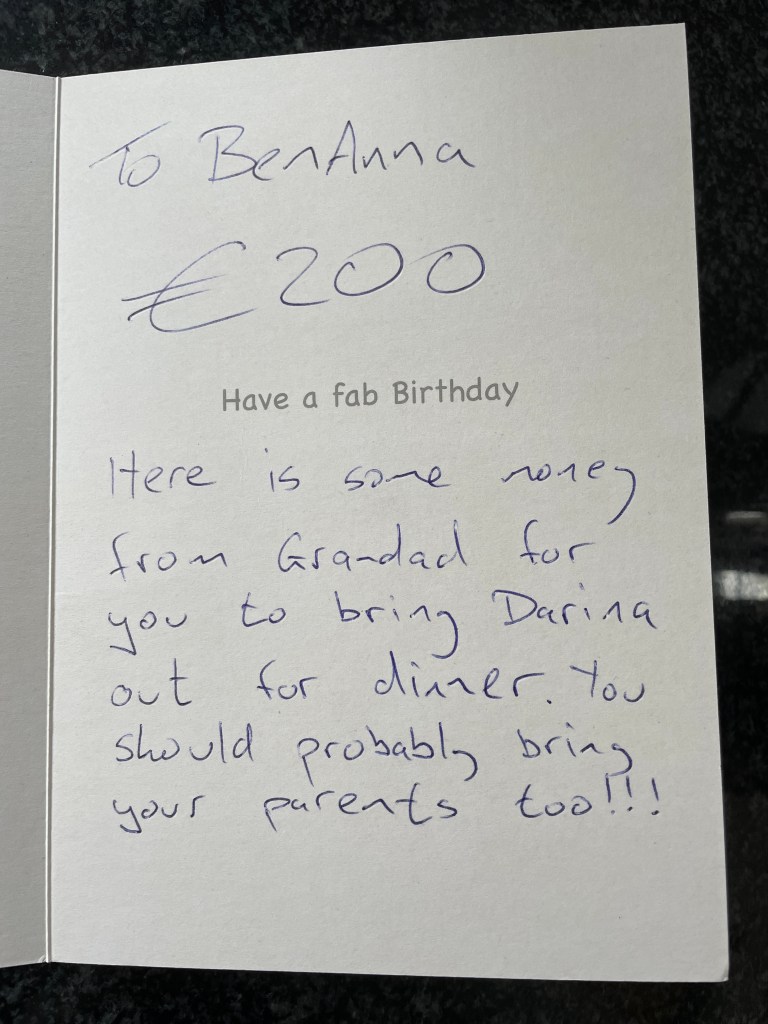 To BenAnna
€200
Have a fab Birthday
Here is some money
from Grandad for
you to bring Darina
out for dinner. You
should probably bring
your parents too!!!